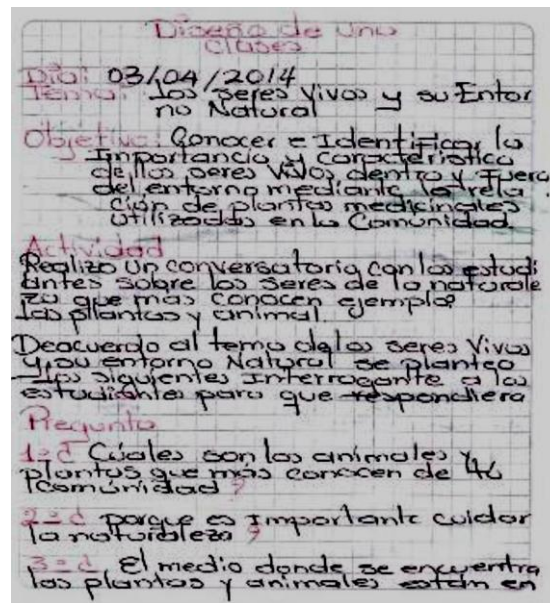 Diseño de una
clases
Dia: 03/04/2014
Tema: Los seres vivos y su Entor
no Natural
Objetivo: Conocer e Identificar la
Importancia y caracteristica
de los seres vivos dentro y Fuera
del entorno mediante la rela
ción de plantas medicinales
Utilizadas en la Comunidad
Actividad
Realizo un conversatorio con los estudi
antes sobre los seres de la naturale
za que más conocen ejemplo
las plantas y animal.
Deacuerdo al tema de los seres Vivos
y su entorno Natural se planteo
los siguientes Interrogante a los
estudiantes para que respondiera
Pregunta
1=¿ Cúales son los animales y
plantas que más conocen de tu
Comúnidad ?
2=¿ porque es Importante cuidar
la naturaleza ?
3=¿ El medio donde se encuentra
las plantas y animales están en